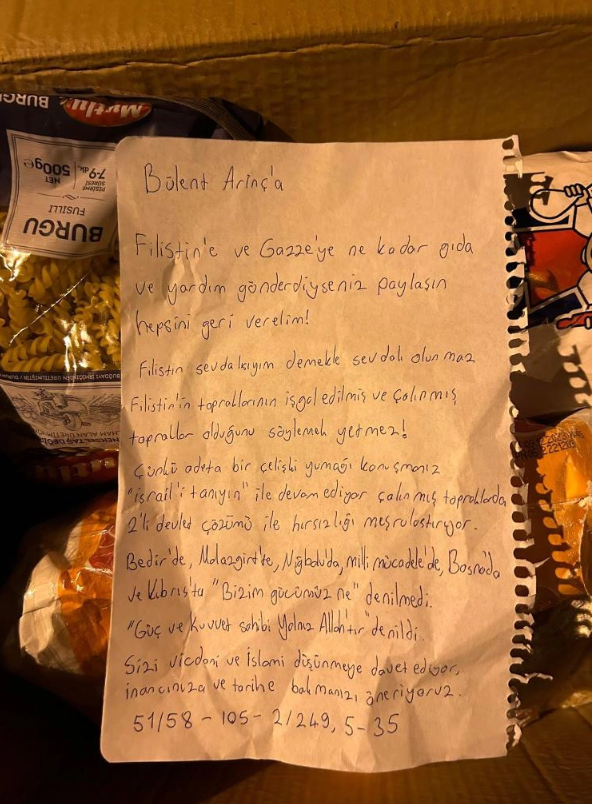 Bülent Arınç'a
Filistin'e ve Gazze'ye ne kadar gıda
ve yardım gönderdiyseniz paylaşın
hepsini geri verelim!
Filistin sevdalısıyım demekle sevdalı olunmaz
Filistin'in topraklarının işgal edilmiş ve çalınmış
topraklar olduğunu söylemek yetmez!
Çünkü adeta bir çelişki yumağı konuşmanız
"israil'i tanıyın" ile devam ediyor çalınmış topraklarda,
2'li devlet çözümü ile hırsızlığı meşrulaştırıyor.
Bedir'de, Malazgirt'te, Niğbolu'da, milli mücadele'de, Bosna'da
ve Kıbrıs'ta "Bizim gücümüz ne" denilmedi.
"Güç ve kuvvet sahibi Yalnız Allah'tır" denildi.
Sizi vicdani ve İslami düşünmeye davet ediyor,
inancınıza ve tarihe bakmanızı öneriyoruz.
51/58 - 105 - 2/249, 5-35
Mutlu
BURGU
FUSILLI
BURGU
NET
500g e
PİŞİRME
SÜRESİ
7-9 dk.